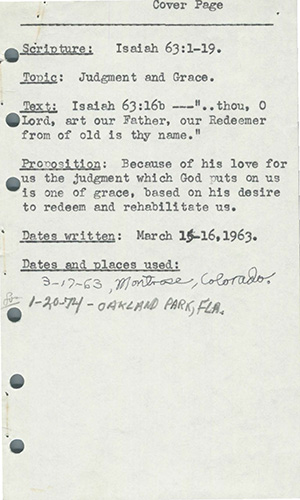 Cover Page
Scripture: Isaiah 63:1-19.
Topic: Judgment and Grace.
Text: Isaiah 63:16b ---"..thou, O
Lord, art our Father, our Redeemer
from of old is thy name."
Proposition: Because of his love for
us the judgment which God puts on us
is one of grace, based on his desire
to redeem and rehabilitate us.
Dates written: March 15-16,1963.
Dates and places used:
3-17-63, Montrose, Colorado.
1-20-74 - OAKLAND PARK, FLA.